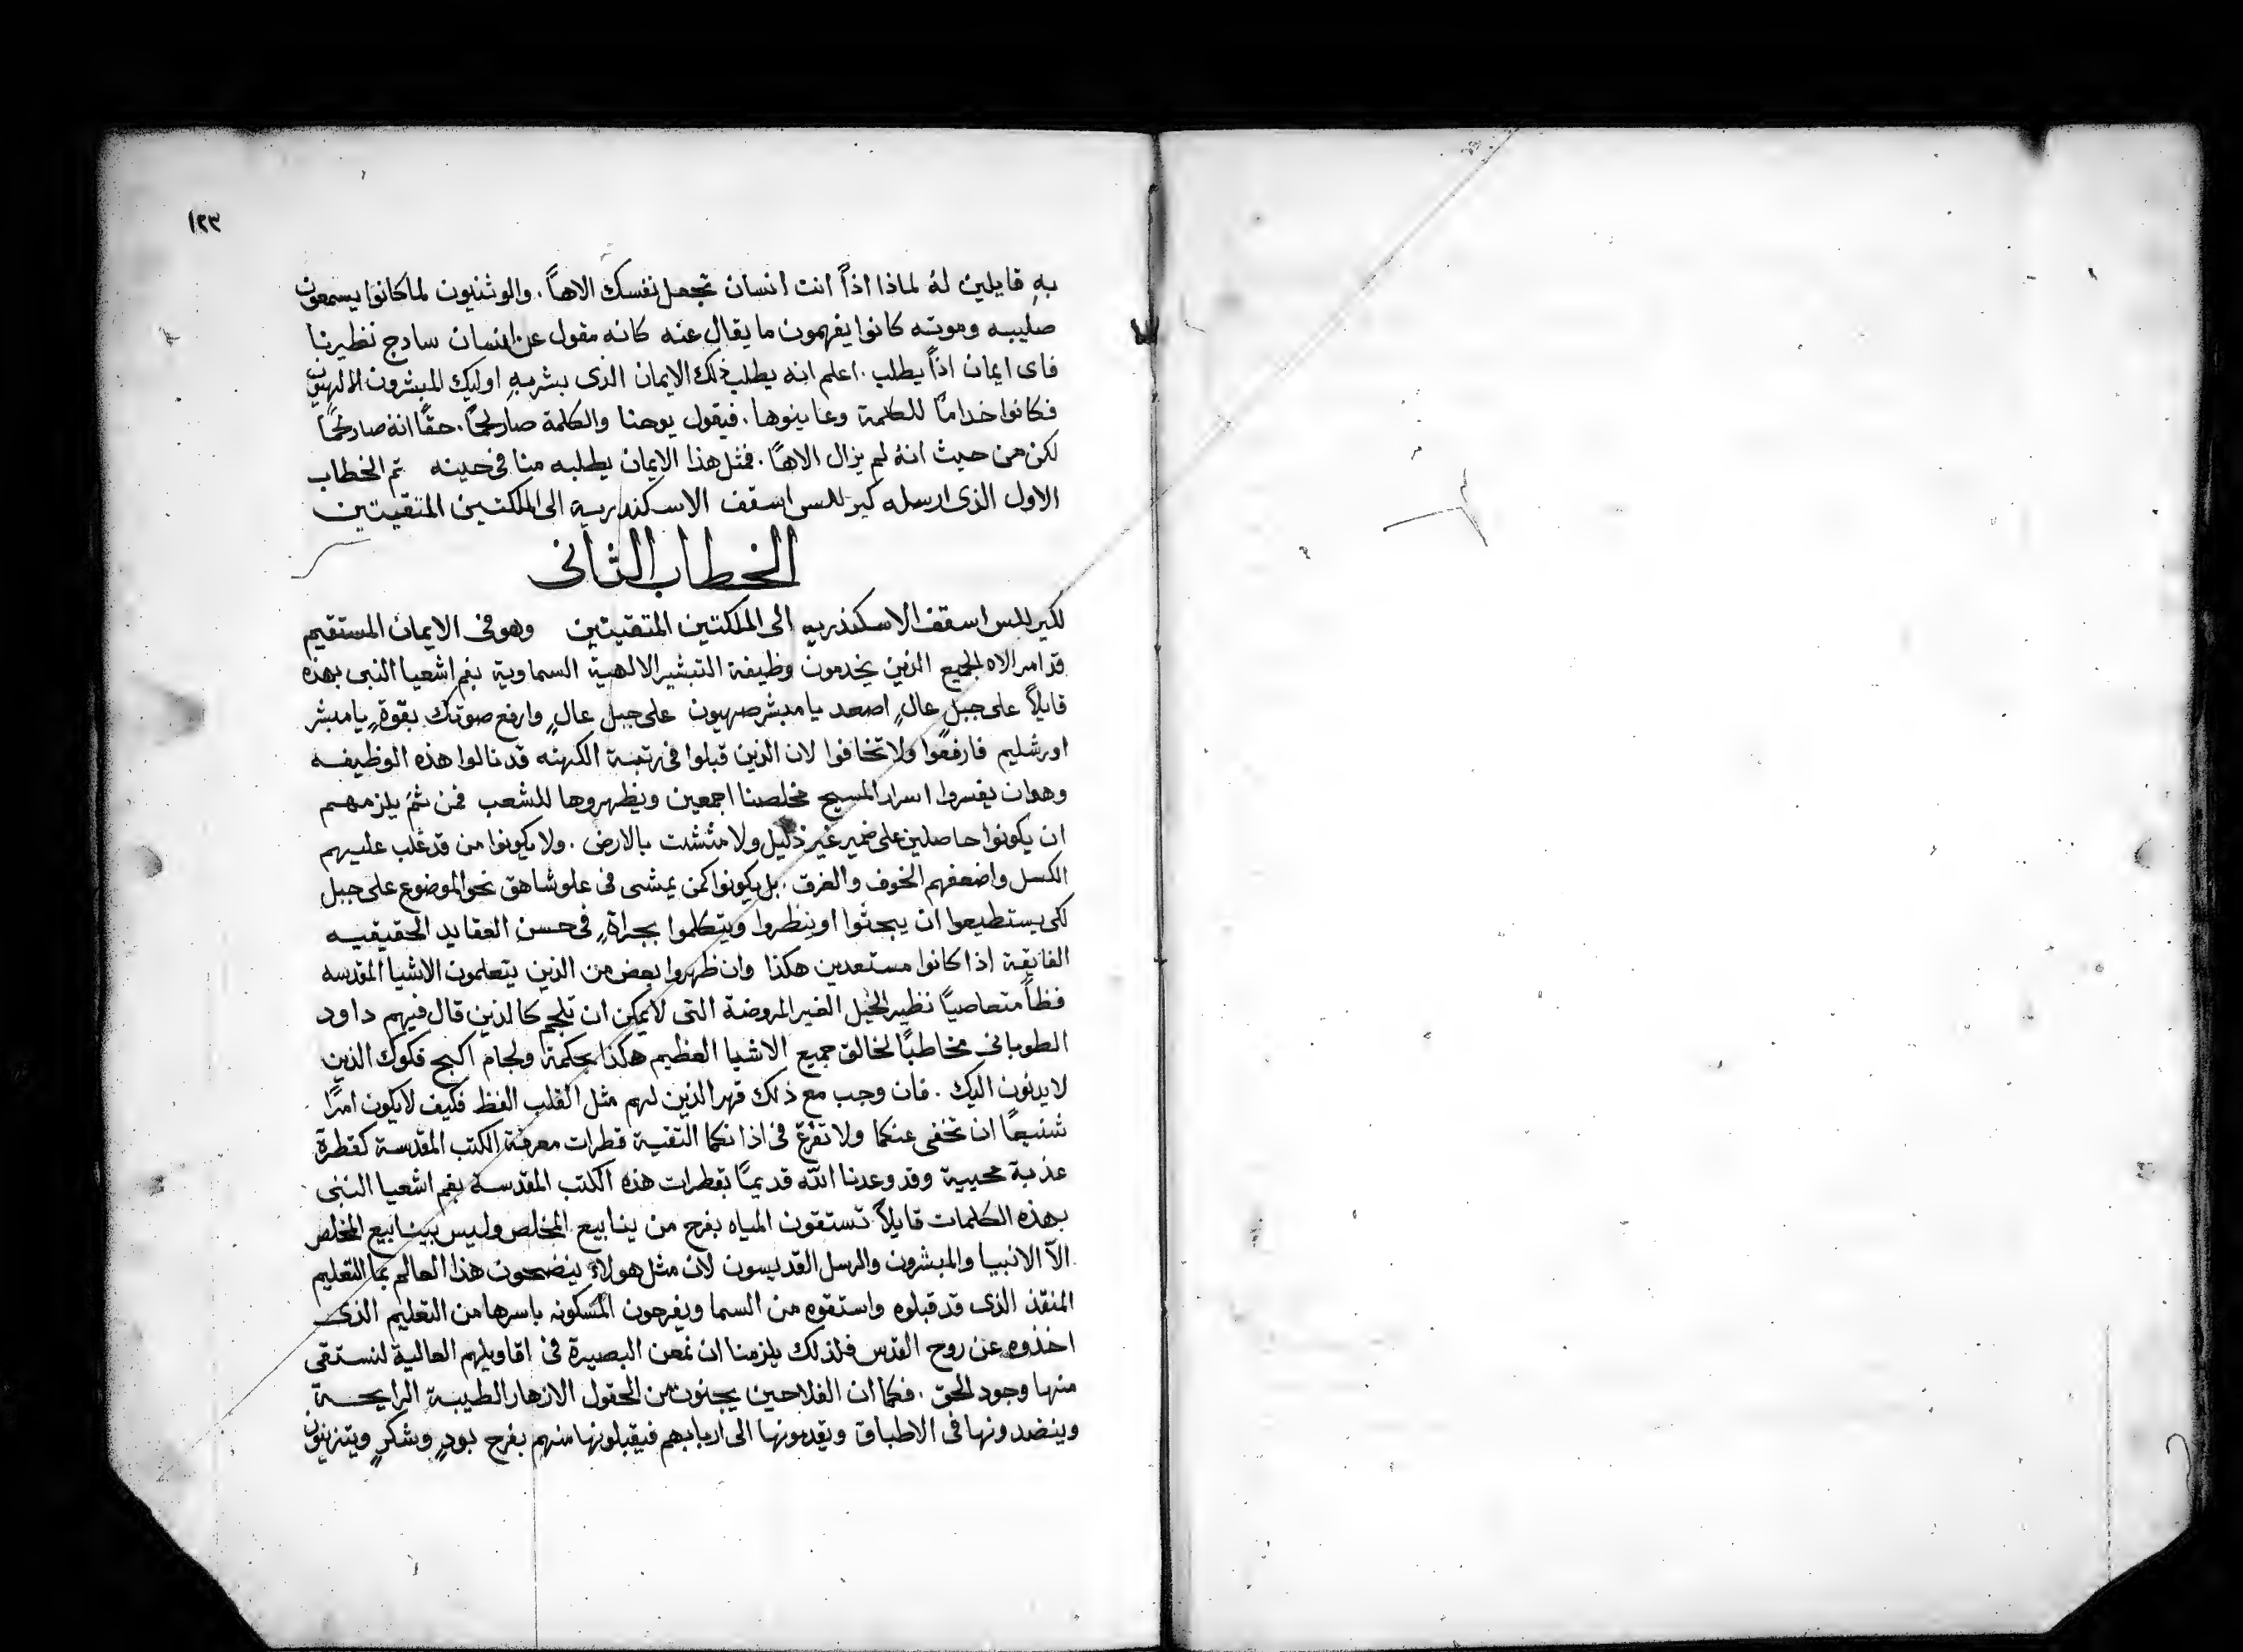 ١٢٣
بهِ قايلين لهُ لماذا اذاً انت انسان تجعل نفسك الاهاً. والوثنيون لما كانوا يسمعون
صليبه وموته كانوا يفهمون ما يقال عنه كانه مقول عن انسان سادج نظيرنا
فاى ايمان اذاً يطلب. اعلم انه يطلب ذلك الايمان الذى بشر بهِ اوليك المبشرون الالهيون
فكانوا خداماً للكلمة وعاينوها. فيقول يوحنا والكلمة صار لحماً. حقاً انهُ صار لحماً
لكن من حيث انهُ لم يزال الاهاً. فمثل هذا الايمان يطلبه منا فى حينه تم الخطاب
الاول الذى ارسله كيرللس اسقف الاسكندرية الى الملكتين المتقيتين
الخطاب الثانى
لكيرللس اسقف الاسكندريه الى الملكتين المتقيتين وهو فى الايمان المستقيم
قد امر الاه الجميع الذين يخدمون وظيفة التبشير الالهية السماوية بفم اشعيا النبى بهذه
قايلاً على جبلٍ عالٍ اصعد يا مبشر صهيون على جبلٍ عالٍ وارفع صوتك بقوةٍ يا مبشر
اورشليم فارفعوا ولا تخافوا لان الذين قبلوا فى رتبة الكهنه قد نالوا هذه الوظيفه
وهو ان يفسروا اسرار المسيح مخلصنا اجمعين ويظهروها للشعب فمن ثمَ يلزمهم
ان يكونوا حاصلين على ضمير غير ذليل ولا متشت بالارض. ولا يكونوا من قد غلب عليهم
الكسل واضعفهم الخوف والغرق. بل يكونوا كمن يمشى فى علو شاهق نحو الموضوع على جبل
لكى يستطيعوا ان يبحثوا او ينظروا ويتكلموا بجراةٍ فى حسن العقايد الحقيقيه
الفايقة اذا كانوا مستعدين هكذا وان ظهروا بعض من الذين يتعلمون الاشيا المقدسه
فظاً متعاصياً نظير الخيل الغير المروضة التى لا يمكن ان تلجم كالذين قال فيهم داود
الطوبانى مخاطباً لخالق جميع الاشيا العظيم هكذا بحكمة ولجام اكبح فكوك الذين
لا يدنون اليك. فان وجب مع ذلك قهر الذين لهم مثل القلب الفظ فكيف لا يكون امراً
شنيعاً ان تخفى عنكما ولا تفرغ فى اذانكما التقية قطرات معرفة الكتب المقدسة كقطرة
عذبة محيية وقد وعدنا الله قديماً بقطرات هذه الكتب المقدسة بفم اشعيا النبى
بهذه الكلمات قايلاً تستقون المياه بفرح من ينابيع المخلص وليس بينابيع المخلص
الاّ الانبيا والمبشرون والرسل القديسون لان مثل هولاء ينضحون هذا العالم بما التعليم
المنقذ الذى قد قبلوه واستقوه من السما ويفرحون المسكونه باسرها من التعليم الذى
اخذوه عن روح القدس فلذلك يلزمنا ان نمعن البصيرة فى اقاويلهم العالية لنستقى
منها وجود الحق. فكما ان الفلاحين يجنون من الحقول الازهار الطيبة الرايحة
وينضدونها فى الاطباق ويقدمونها الى اربابهم فيقبلونها منهم بفرح بودٍ وشكرٍ ويتزينون